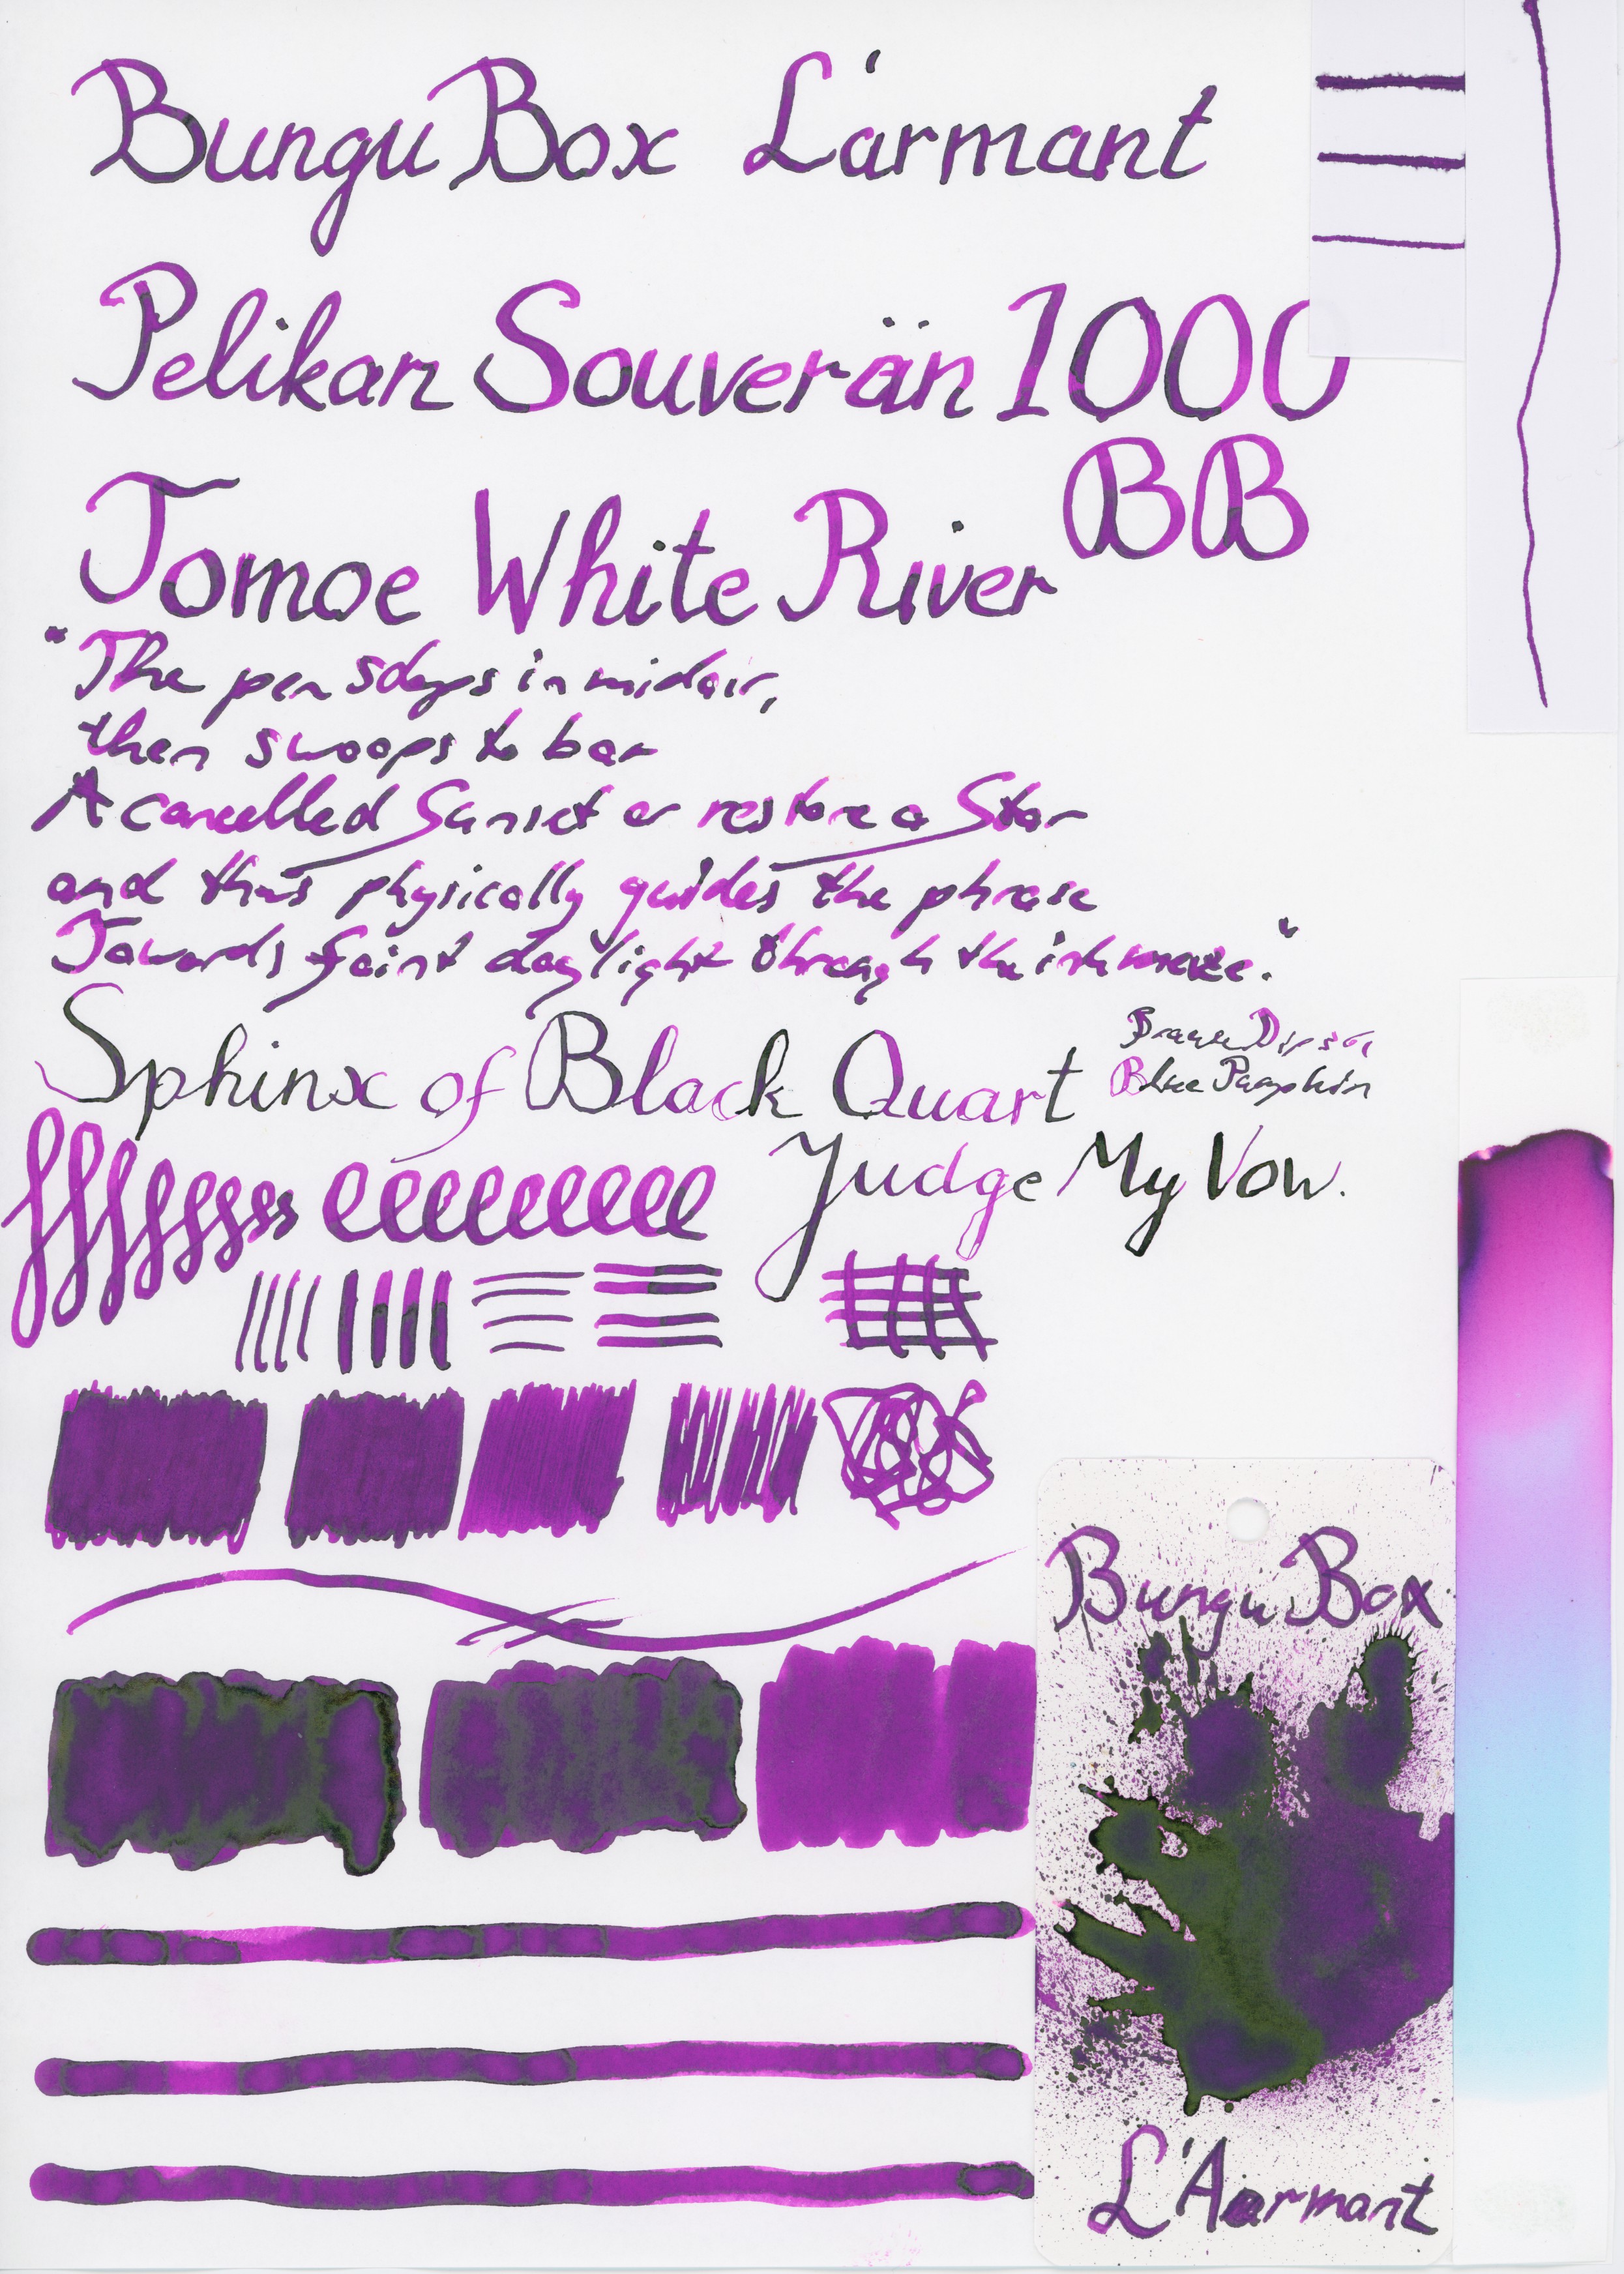 BunguBox L'armant
Pelikan Souverän 1000
BB
Tomoe White River
"The pen stays in midair,
then swoops to bar
A cancelled Sunset or restore a Star
and thus physically guides the phrase
Towards faint daylight through the ink maze."
Sphinx of Black Quart
Blue Pumpkin
Judge My Vow.
BunguBox
L'Aarmant